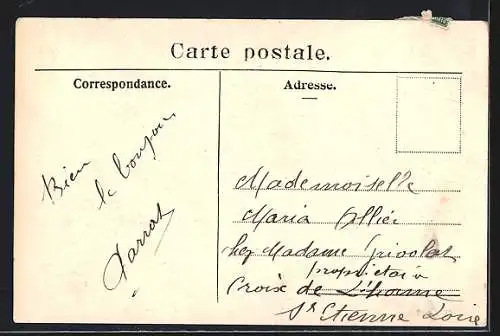 Carte postale.
Correspondance.
Adresse.
Bien
le bonjour
Mademoiselle
Maria Allier
chez Madame
propriétaire
Croix de L'horme
St Etienne Loire